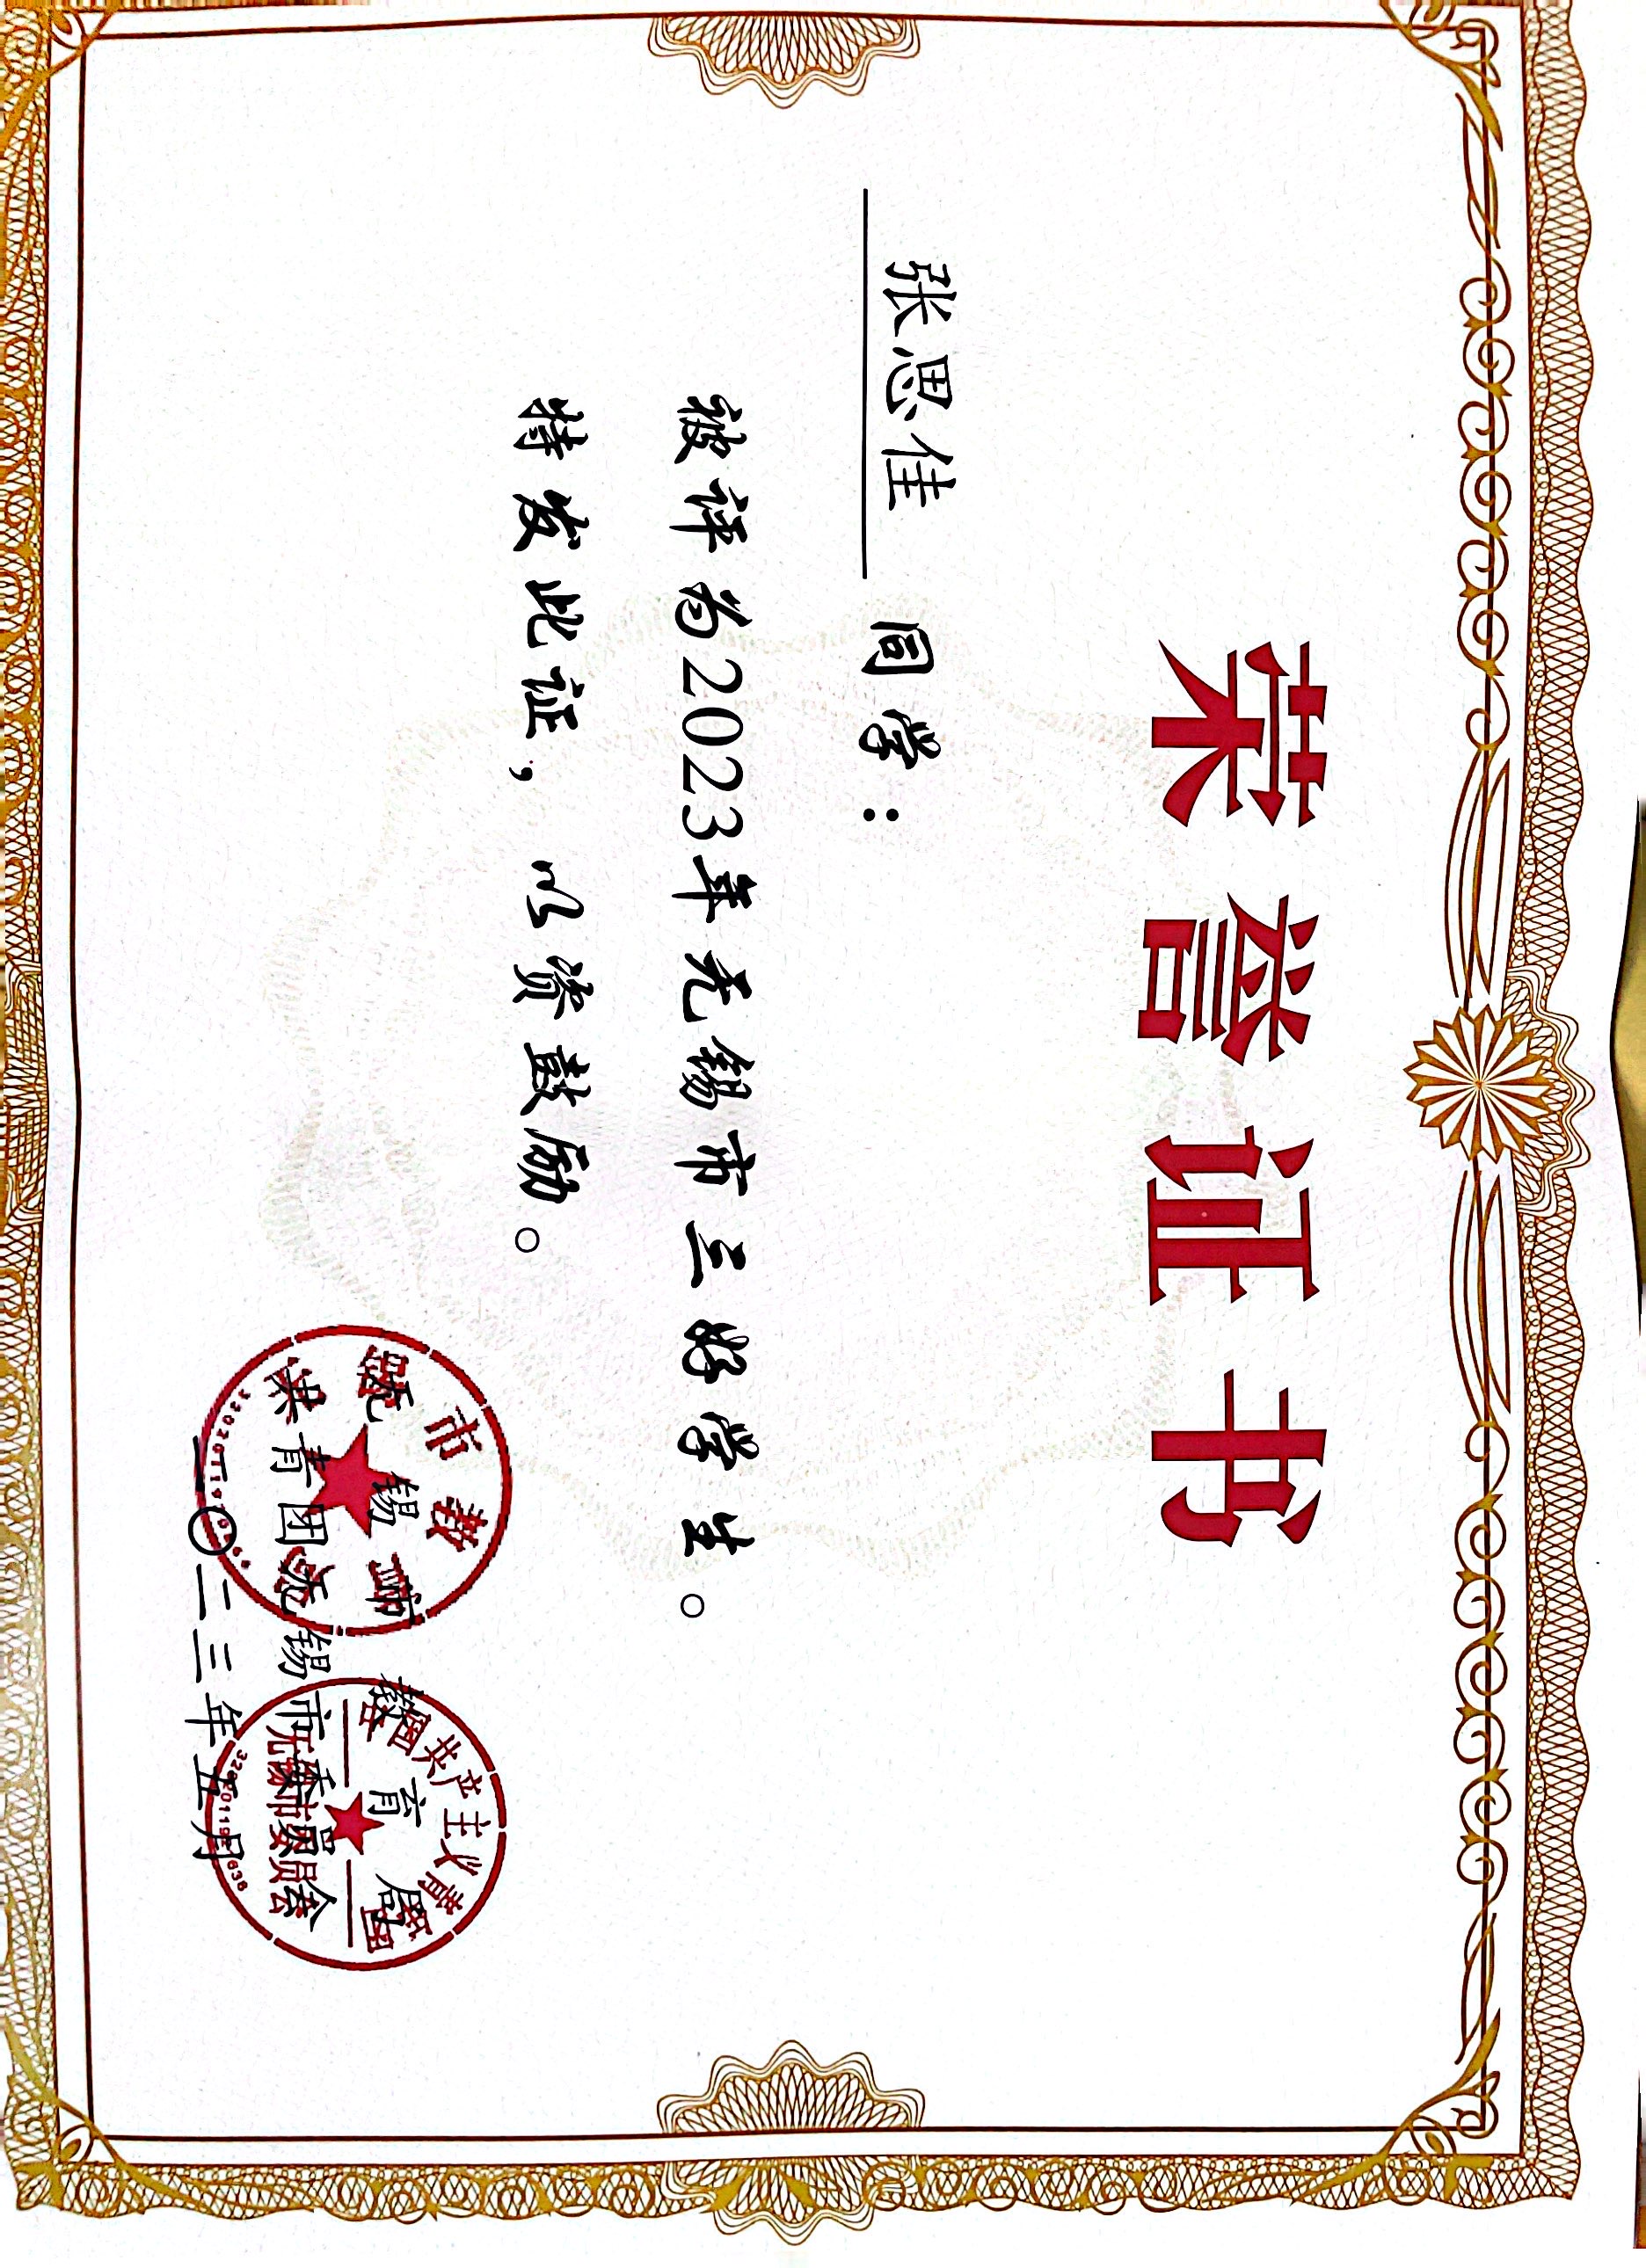 荣誉证书
张思佳 同学：
被评为2023年无锡市三好学生。
特发此证，以资鼓励。
无锡市教育局
共青团无锡市委员会
二〇二三年五月
国共产主义青
无锡市委员会